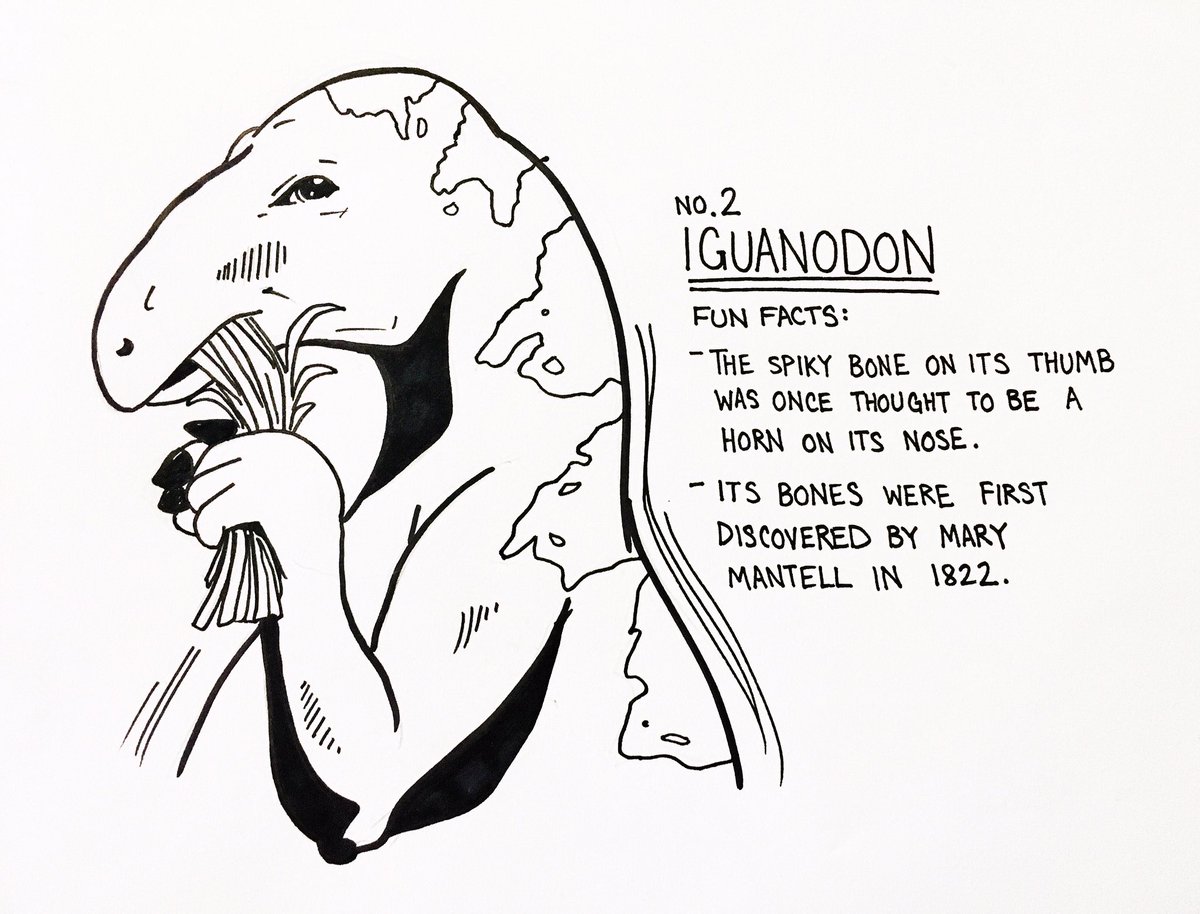 NO.2
IGUANODON
FUN FACTS:
- THE SPIKY BONE ON ITS THUMB
WAS ONCE THOUGHT TO BE A
HORN ON ITS NOSE.
- ITS BONES WERE FIRST
DISCOVERED BY MARY
MANTELL IN 1822.